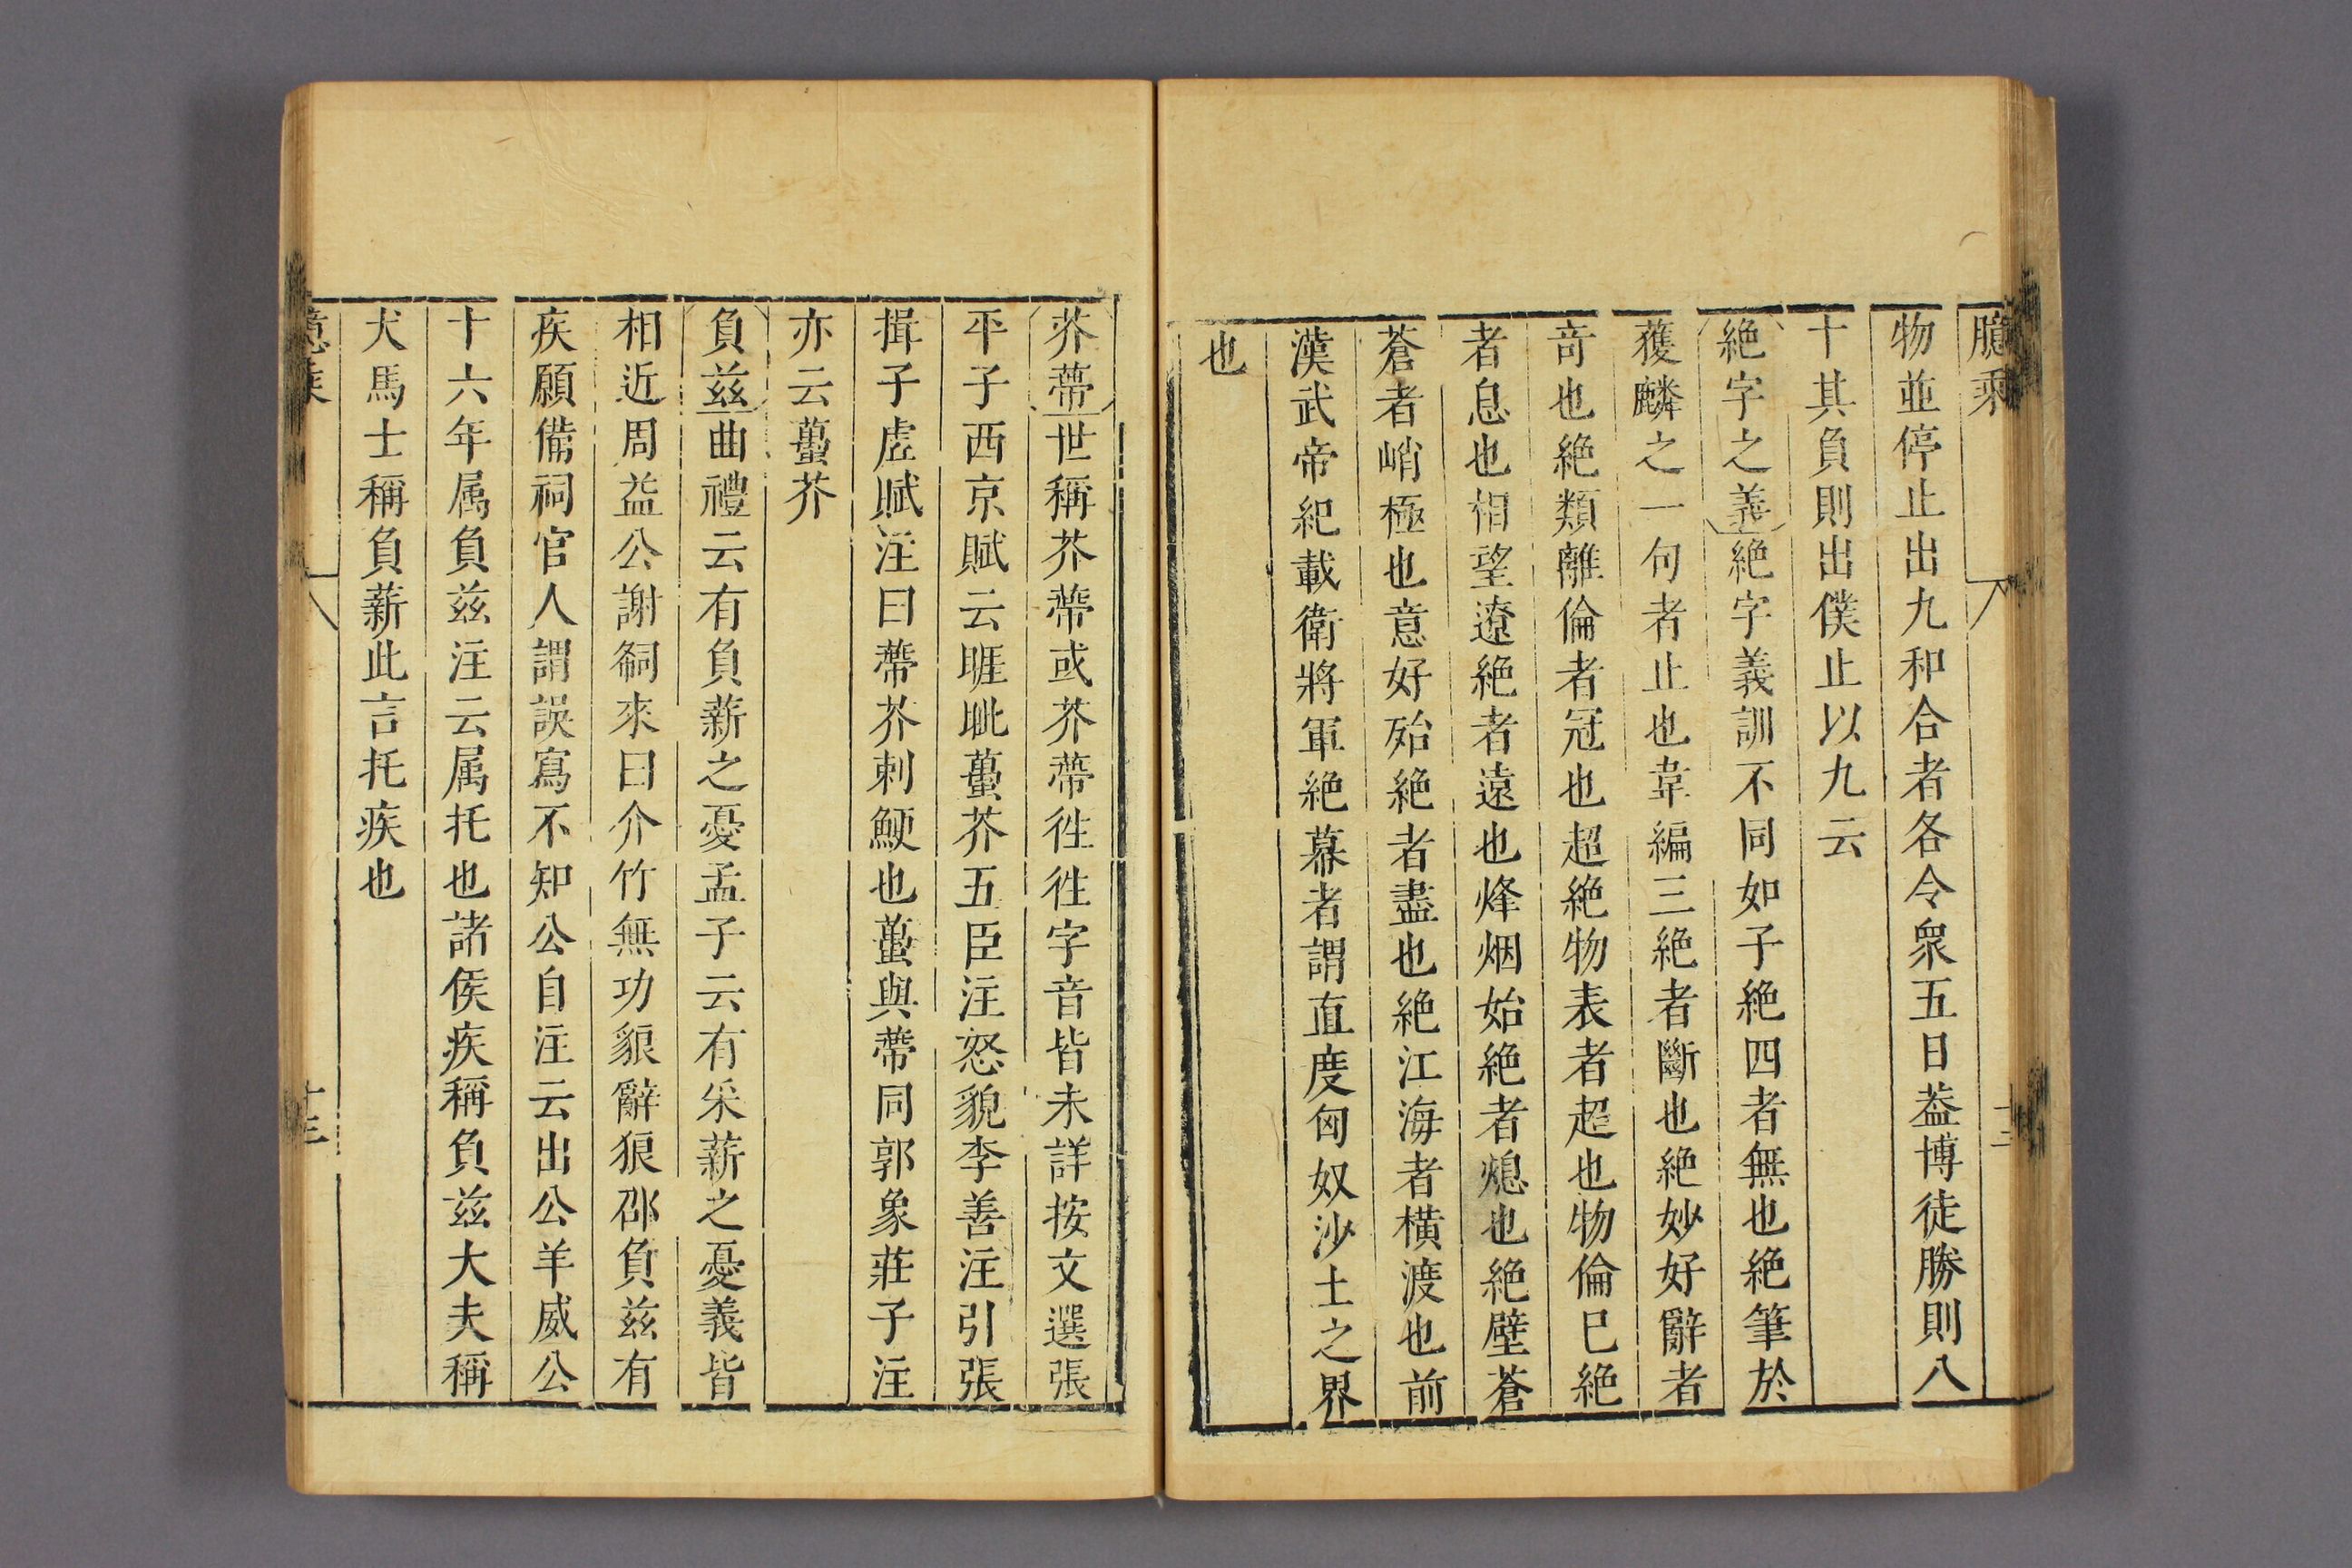 臆乘
十二
物並停止出九和合者各令衆五日葢博徒勝則八
十其負則出僕止以九云
絶字之義絶字義訓不同如子絶四者無也絶筆於
獲麟之一句者止也韋編三絶者斷也絶妙好辭者
竒也絶類離倫者冠也超絶物表者超也物倫巳絶
者息也相望遼絶者遠也烽烟始絶者熄也絶壁蒼
蒼者峭極也意好殆絶者盡也絶江海者橫渡也前
漢武帝紀載衛將軍絶幕者謂直度匈奴沙土之界
也
芥蔕世稱芥蔕或芥蔕徃徃字音皆未詳按文選張
平子西京賦云睚眦蠆芥五臣注怒貌李善注引張
揖子虗賦注曰蔕芥刺鯁也蠆與蔕同郭象莊子注
亦云蠆芥
負兹曲禮云有負薪之憂孟子云有采薪之憂義皆
相近周益公謝祠來曰介竹無功貎辭狼邵負兹有
疾願備祠官人謂誤寫不知公自注云出公羊威公
十六年属負兹注云属托也諸侯疾稱負兹大夫稱
犬馬士稱負薪此言托疾也
臆乘
十三